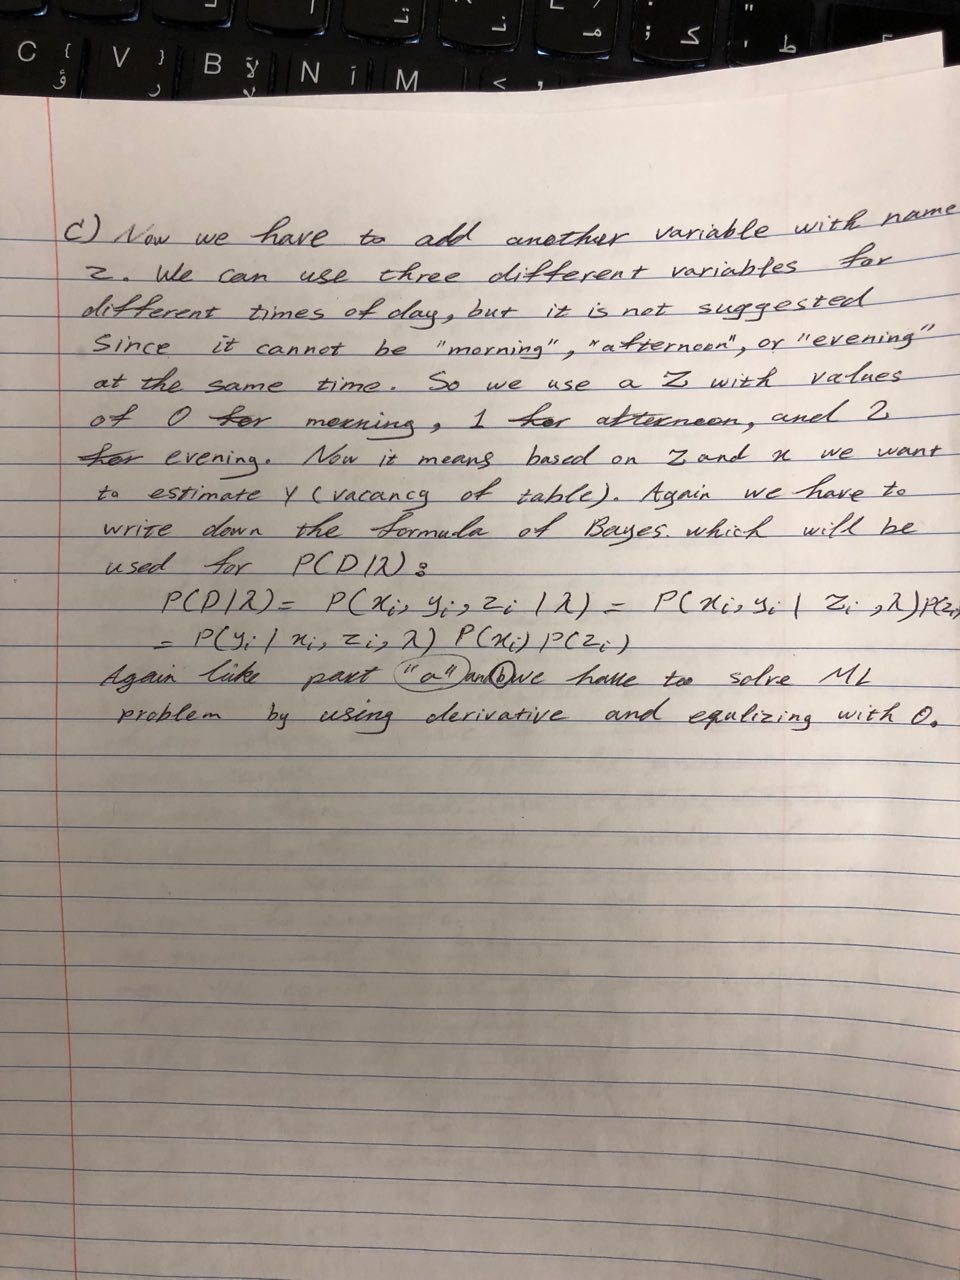 C { ؤ V } ر B لآ N آ M < ,
c) Now we have to add another variable with name
z. We can use three different variables for
different times of day, but it is not suggested
Since it cannot be "morning", "afternoon", or "evening"
at the same time. So we use a Z with values
of 0 for morning, 1 for afternoon, and 2
for evening. Now it means based on Z and x we want
to estimate Y (vacancy of table). Again we have to
write down the formula of Bayes. which will be
used for P(D|λ):
P(D|λ) = P(xi, yi, zi | λ) = P(xi, yi | zi, λ)P(zi)
= P(yi | xi, zi, λ) P(xi) P(zi)
Again like part "a" and b we have too solve ML
problem by using derivative and equalizing with 0.